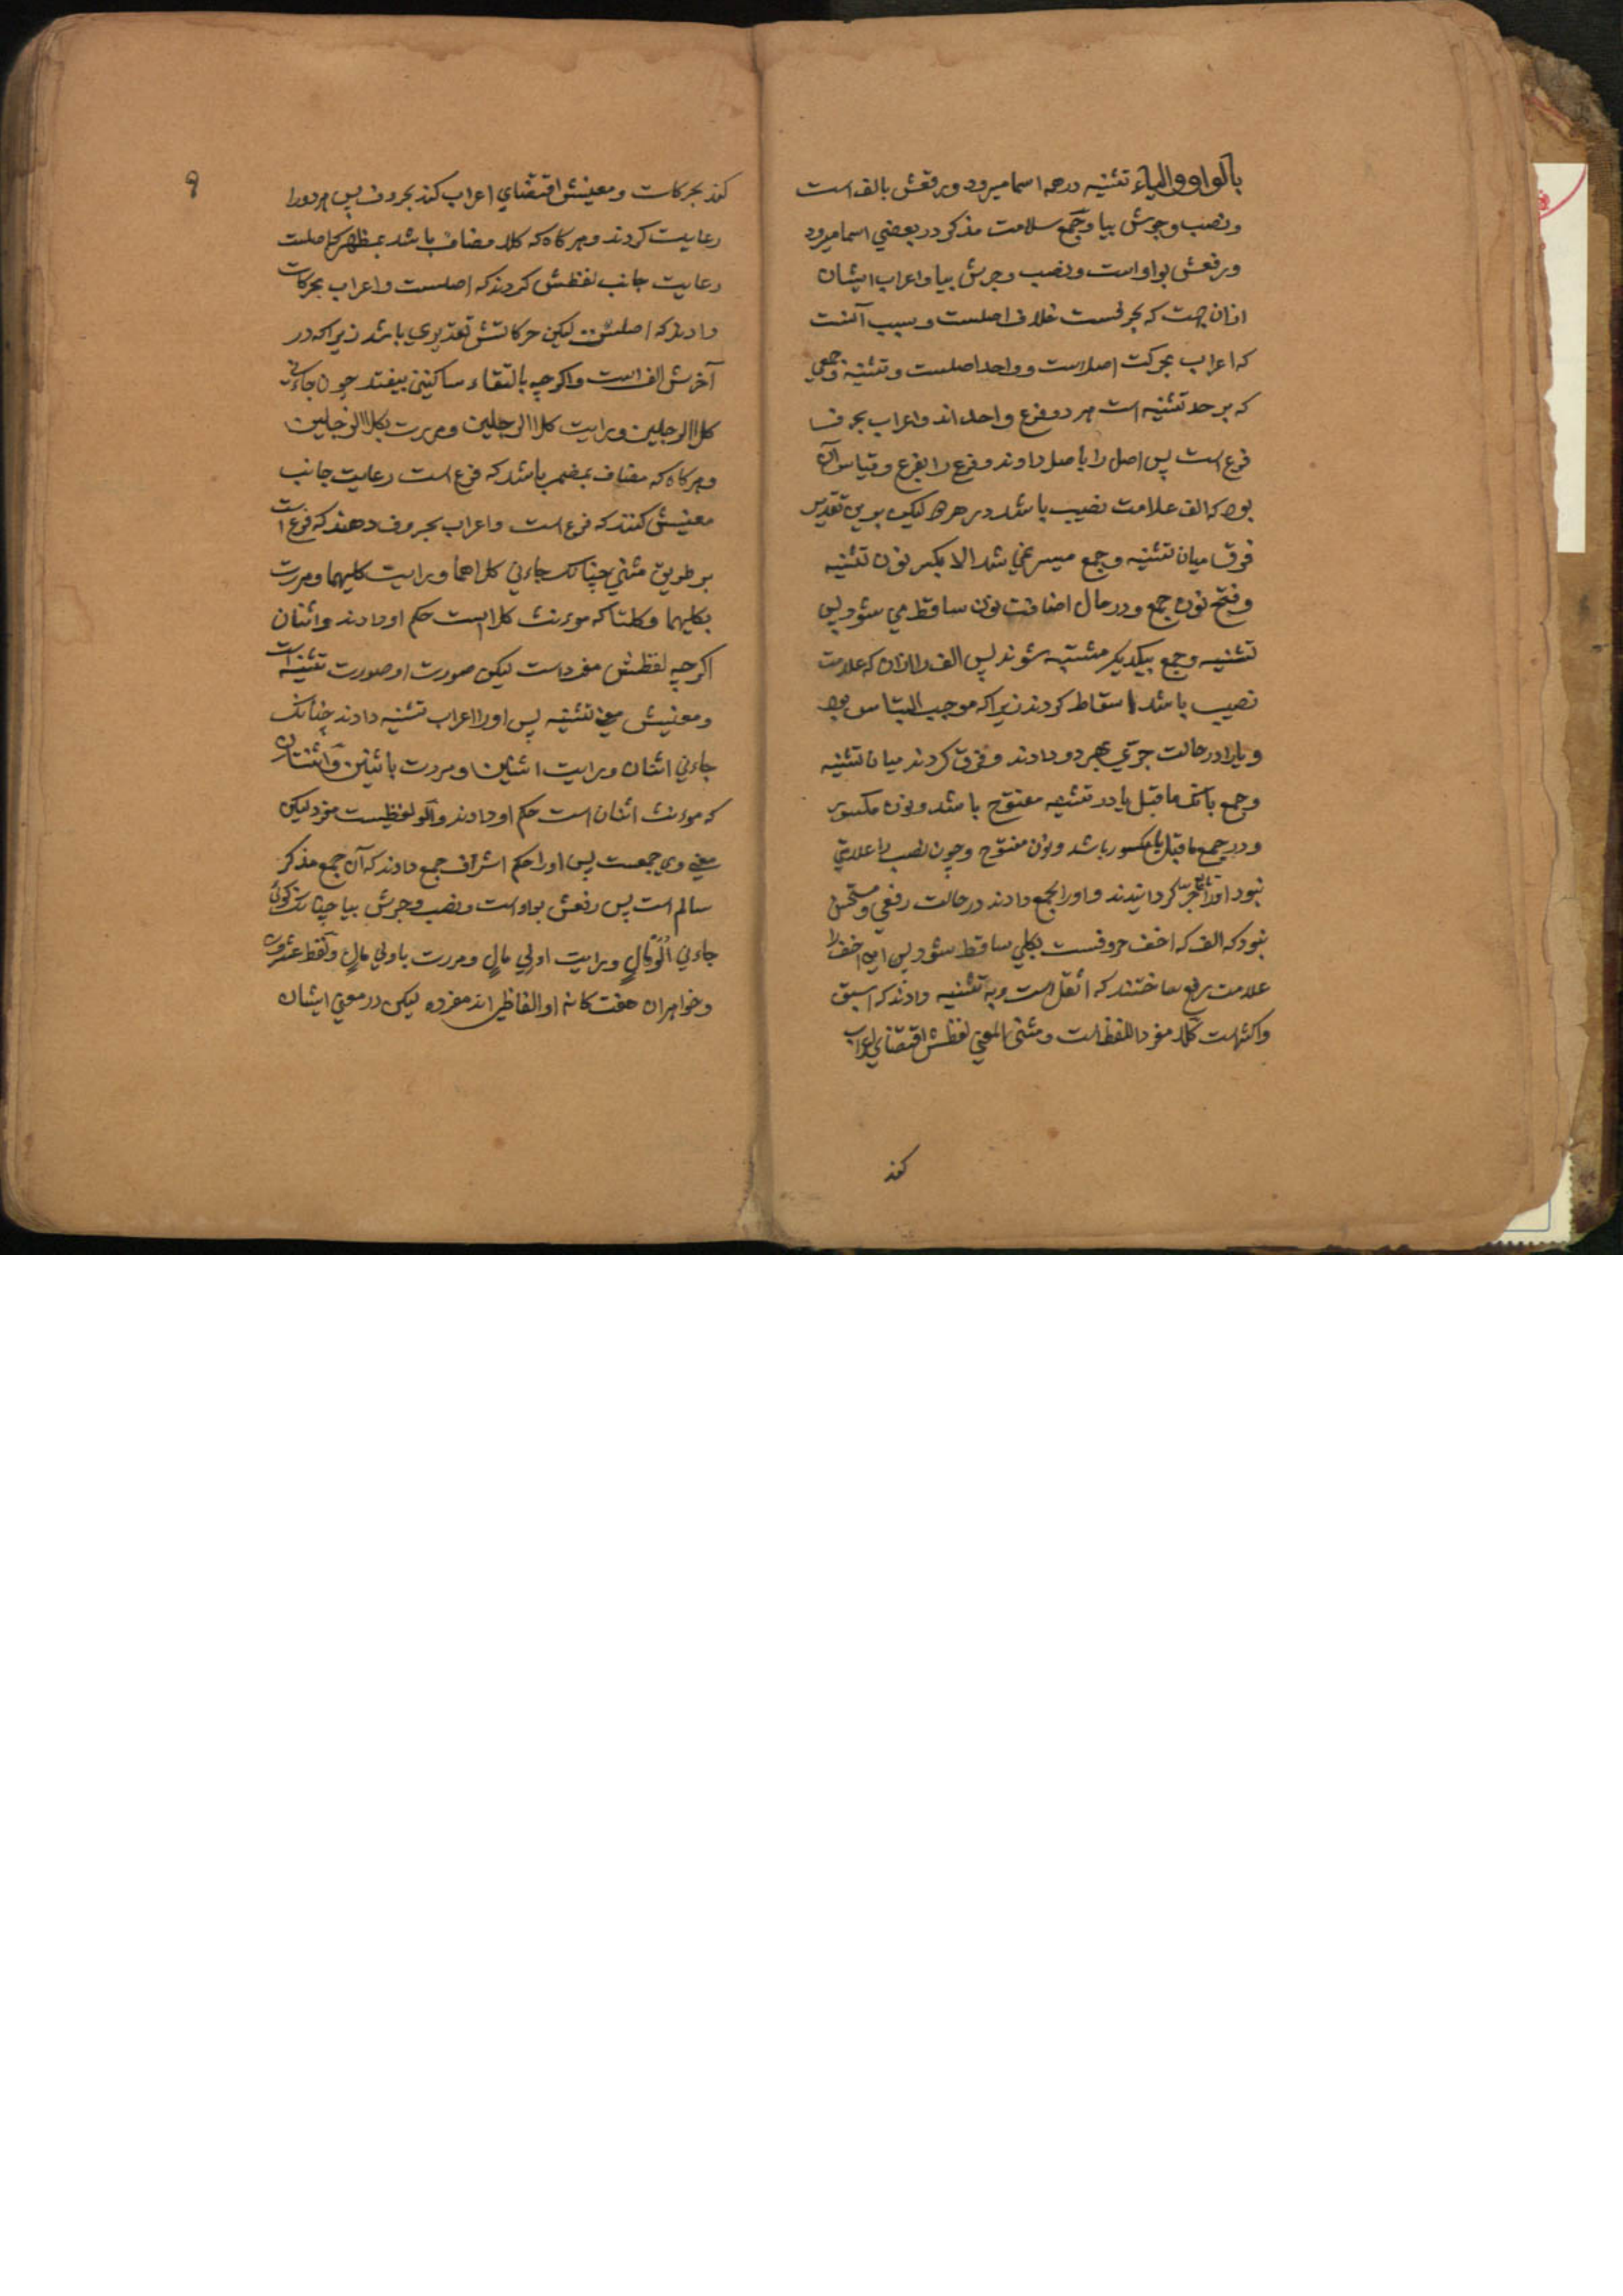 بالواو والیاء تثنیه در همه اسما میرود و رفعش بالف است
و نصب و جرش بیا و جمع سلامت مذکر در بعضی اسما میرود
و رفعش بواو است و نصب و جرش بیا و اعراب ایشان
ازان جهت که بحرفست خلاف اصلست و سبب آنست
که اعراب بحرکت اصل است و واحد اصلست و تثنیه و جمعی
که بر حد تثنیه است هر دو فرع واحد اند و اعراب بحرف
فرع است پس اصل را باصل دادند و فرع را بفرع و قیاس آن
بود که الف علامت نصب باشد در هر دو لیکن برین تقدیر
فرق میان تثنیه و جمع میسر نمی شد الا بکسر نون تثنیه
و فتح نون جمع و در حال اضافت نون ساقط می شود پس
تثنیه و جمع بیکدیگر مشتبه شوند پس الف را ازان که علامت
نصب باشد اسقاط کردند زیرا که موجب التباس بود
و یا را در حالت جری بهر دو دادند و فرق کردند میان تثنیه
و جمع بانک ماقبل یا در تثنیه مفتوح باشد و نون مکسور
و در جمع ماقبل یا مکسور باشد و نون مفتوح و چون نصب را علامتی
نبود او را تابع جر کردانیدند و واو را بجمع دادند در حالت رفعی و مستحسن
نبود که الف که اخف حروفست بکلی ساقط شود پس این اخف را
علامت رفع ساختند که اثقل است و به تثنیه دادند که اسبق
و اکثرست کلا مفرد اللفظ است و مثنی المعنی لفظش اقتضای اعراب
کند
۹
کند بحرکات و معنیش اقتضای اعراب کند بحروف پس هر دو را
رعایت کردند و هر کاه که کلا مضاف باشد بمظهر که اصلست
رعایت جانب لفظش کردند که اصلست و اعراب بحرکات
دادند که اصلست لیکن حرکاتش تقدیری باشد زیرا که در
آخرش الف است و اکرچه بالتقاء ساکنین بیفتد چون جاءنی
کلا الرجلین و رایت کلا الرجلین و مررت بکلا الرجلین
و هر کاه که مضاف بمضمر باشد که فرع است رعایت جانب
معنیش کنند که فرع است و اعراب بحروف دهند که فرع است
بر طریق مثنی چنانک جاءنی کلاهما و رایت کلیهما و مررت
بکلیهما و کلتا که مؤنث کلا است حکم او دادند و اثنان
اکرچه لفظش مفرد است لیکن صورت او صورت تثنیه است
و معنیش معنی تثنیه پس او را اعراب تثنیه دادند چنانک
جاءنی اثنان و رایت اثنین و مررت باثنین و اثنتان
که مؤنث اثنان است حکم او دادند و اولو لفظیست مفرد لیکن
معنی وی جمعست پس او را حکم اشراف جمع دادند که آن جمع مذکر
سالم است پس رفعش بواو است و نصب و جرش بیا چنانک کوئی
جاءنی اولو مال و رایت اولی مال و مررت باولی مال و لفظ عشرون
و خواهران هفت کانه او الفاظی اند مفرده لیکن در معنی ایشان